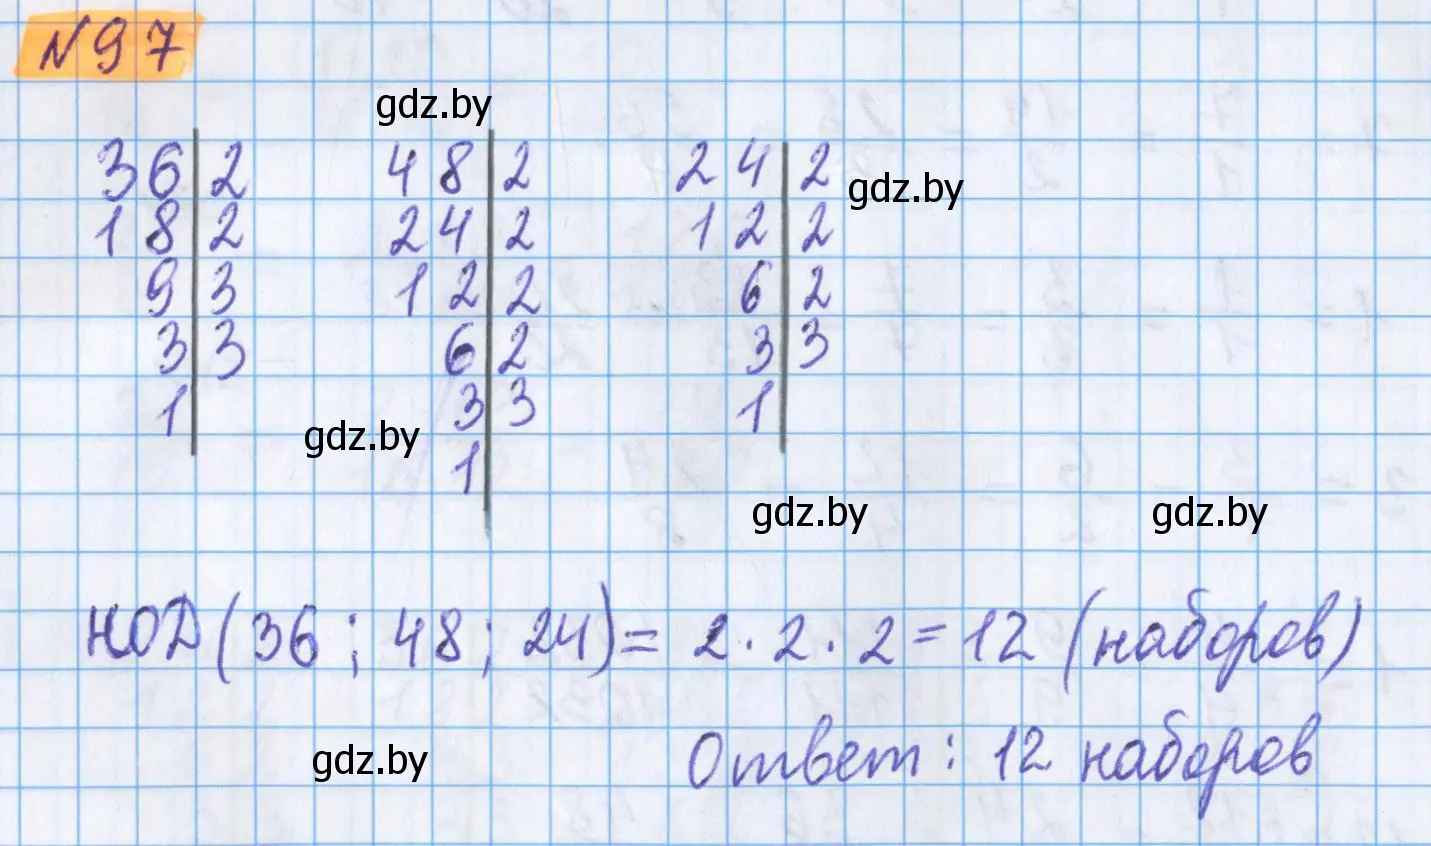 №97
gdz.by
36|2 48|2 24|2
gdz.by
18|2 24|2 12|2
9|3 12|2 6|2
3|3 6|2 3|3
1| 3|3 1|
gdz.by
1|
gdz.by gdz.by
НОД(36; 48; 24)= 2·2·2=12 (наборов)
Ответ: 12 наборов
gdz.by